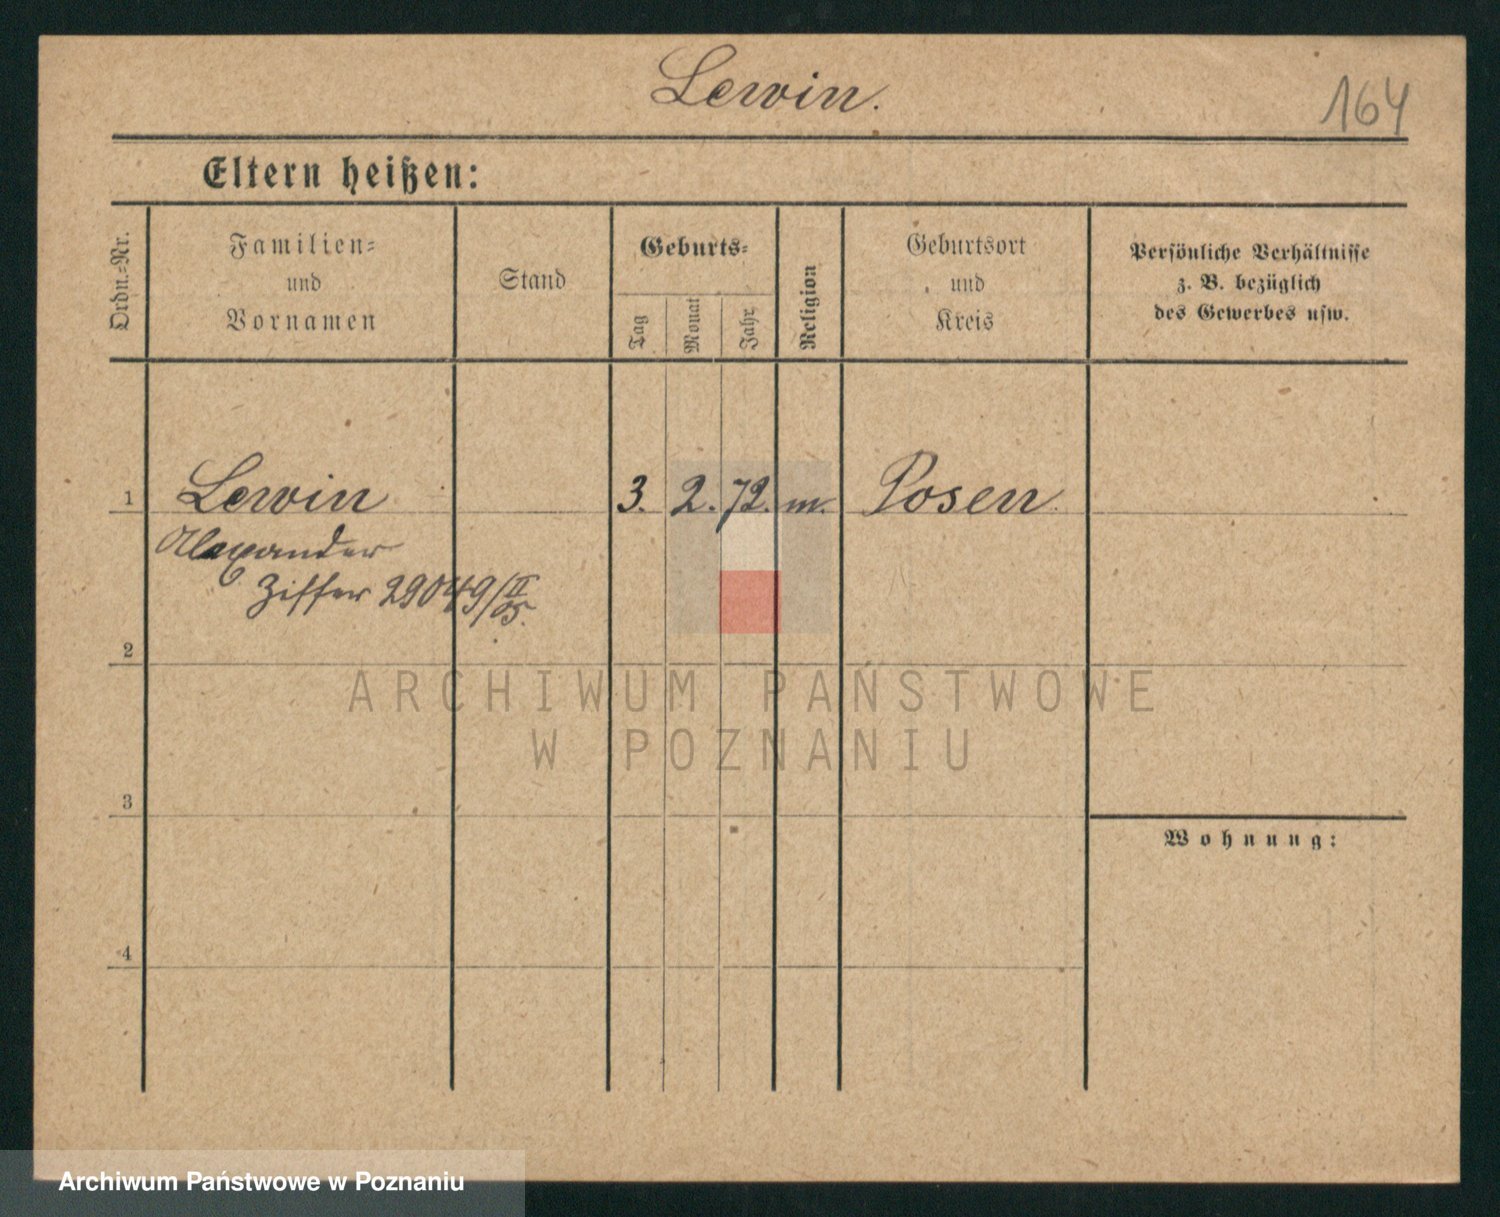 Lewin.
164
Eltern heißen:
Ordn.-Nr.
Familien-
und
Vornamen
Stand
Geburts-
Tag
Monat
Jahr
Religion
Geburtsort
und
Kreis
Persönliche Verhältnisse
z. B. bezüglich
des Gewerbes usw.
1 Lewin 3. 2. 72. m. Posen
Alexander
Ziffer 29049/II 05.
2
ARCHIWUM PAŃSTWOWE
W POZNANIU
3
Wohnung:
4
Archiwum Państwowe w Poznaniu